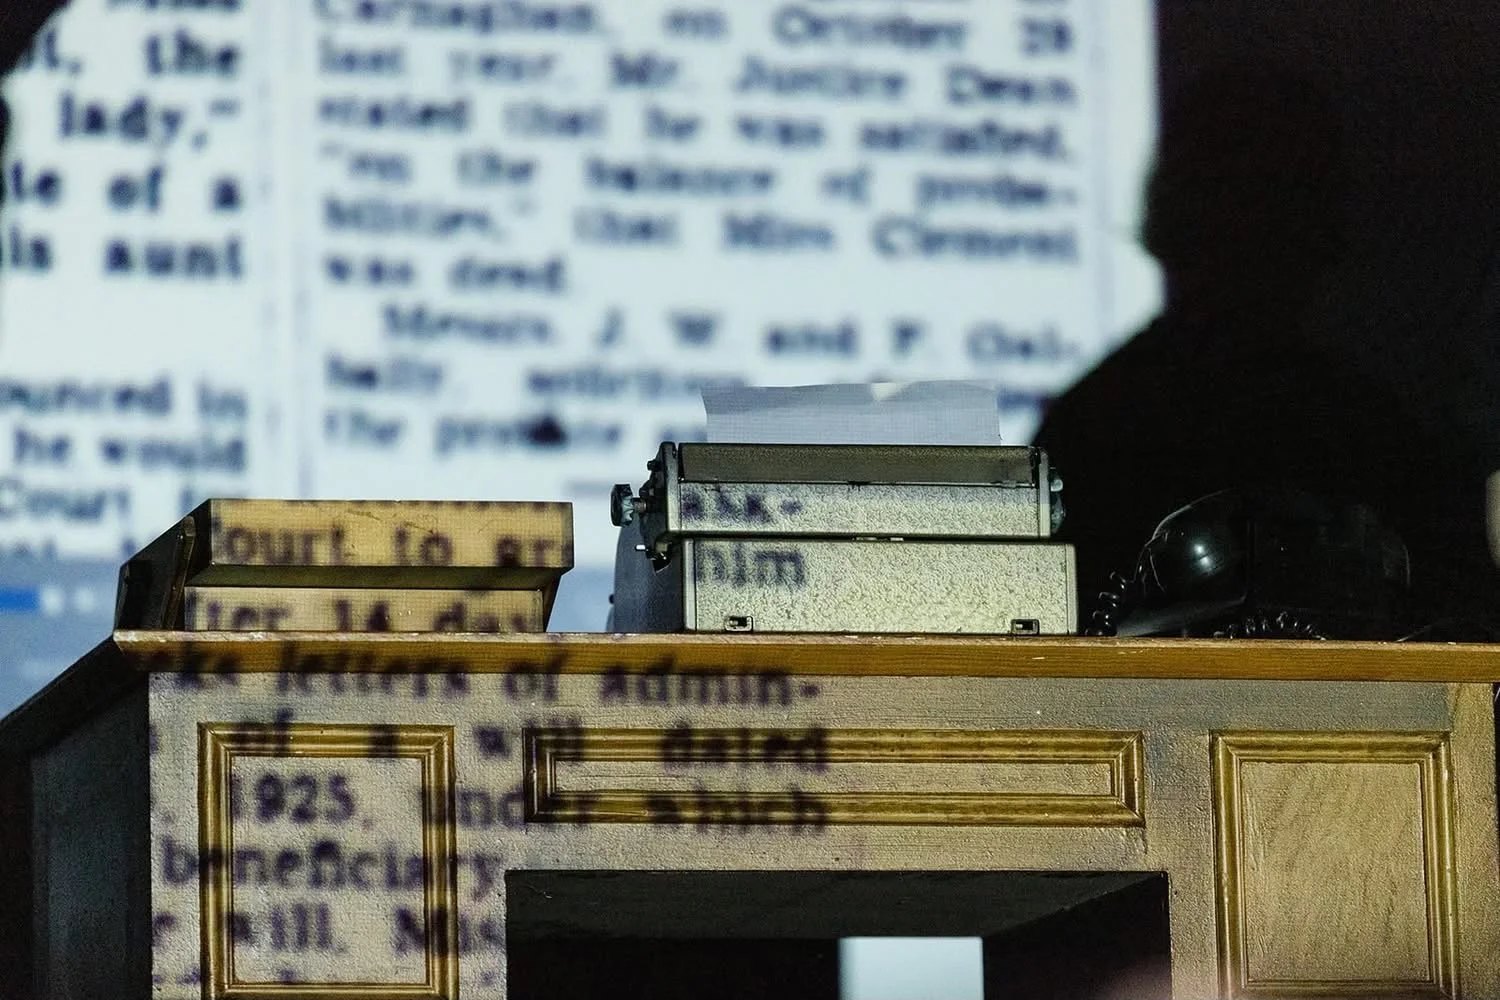 the
lady,"
le of a
is aunt
ounced in
he would
Court to
Carnaghan, on October 28
last year, Mr. Justice Dean
stated that he was satisfied,
"on the balance of proba-
bilities," that Miss Clement
was dead.
Messrs. J. W. and F. Gal-
bally, solicitors
the probate
ask-
Court to gr
him
fter 14 day
ks letters of admin-
of a will dated
1925, under which
beneficiary
e will. Miss